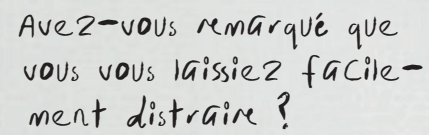 Avez-vous remarqué que
vous vous laissiez facile-
ment distraire ?